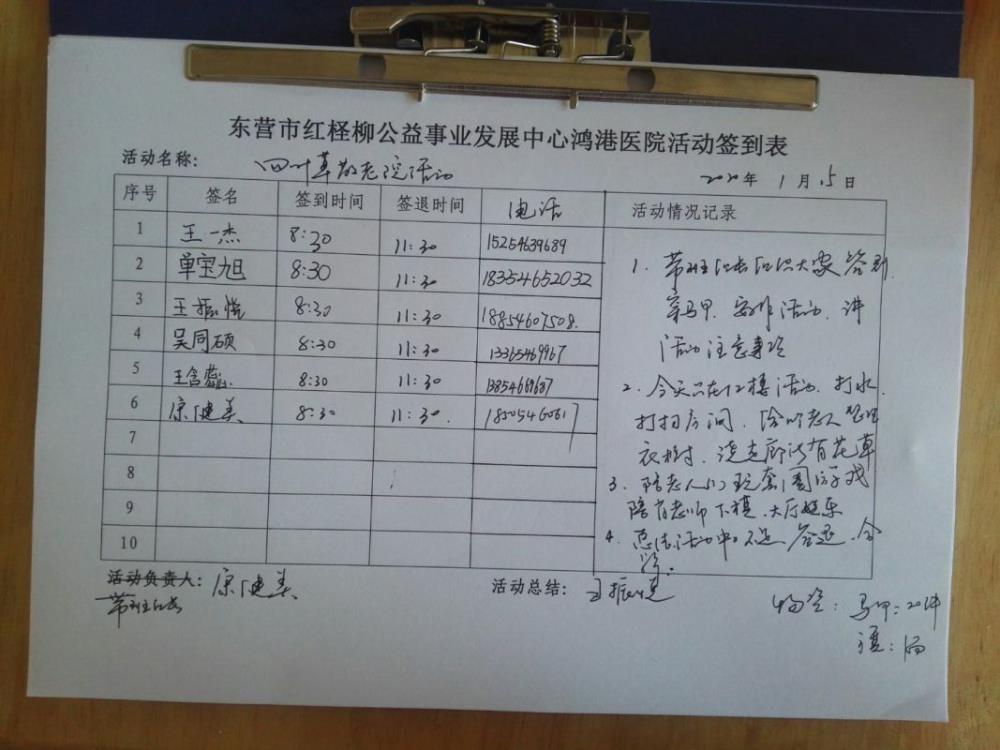 东营市红柽柳公益事业发展中心鸿港医院活动签到表
活动名称： 四叶草敬老院活动 2020年 1月15日
序号 签名 签到时间 签退时间 电话 活动情况记录
1 王一杰 8:30 11:30 15254639689
2 单宝旭 8:30 11:30 18354652032
3 王振悦 8:30 11:30 18854607508
4 吴同硕 8:30 11:30 13365469967
5 王含蕊 8:30 11:30
6 原健美 8:30 11:30
7
8
9
10
1. 带班组长组织大家签到
穿马甲、安排活动、讲
活动注意事项
2. 今天只在12楼活动、打水
打扫房间、给老人整理
衣柜、浇走廊所有花草
3. 陪老人们玩套圈游戏
陪老师下棋、大厅娱乐
4. 总结活动中不足、签退、合
影.
活动负责人： 原健美 活动总结： 王振悦
带班组长
物资：马甲：20件